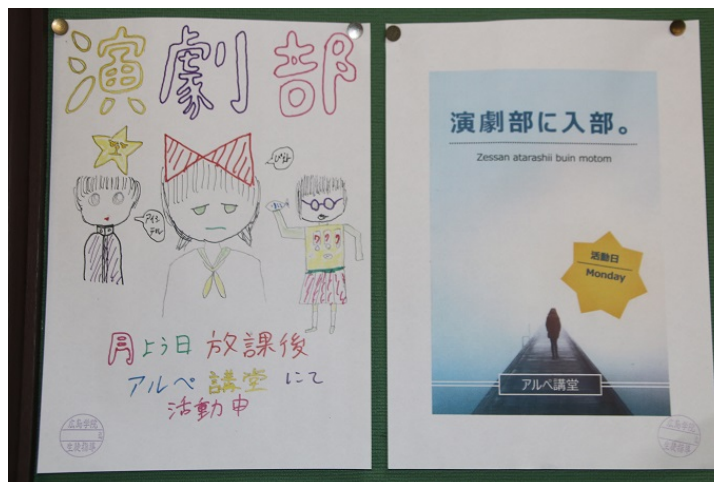 演劇部
月よう日 放課後
アルペ 講堂 にて
活動中
広島学院
生徒指導
演劇部に入部。
Zessan atarashii buin motom
活動日
Monday
アルペ講堂
広島学院
生徒指導